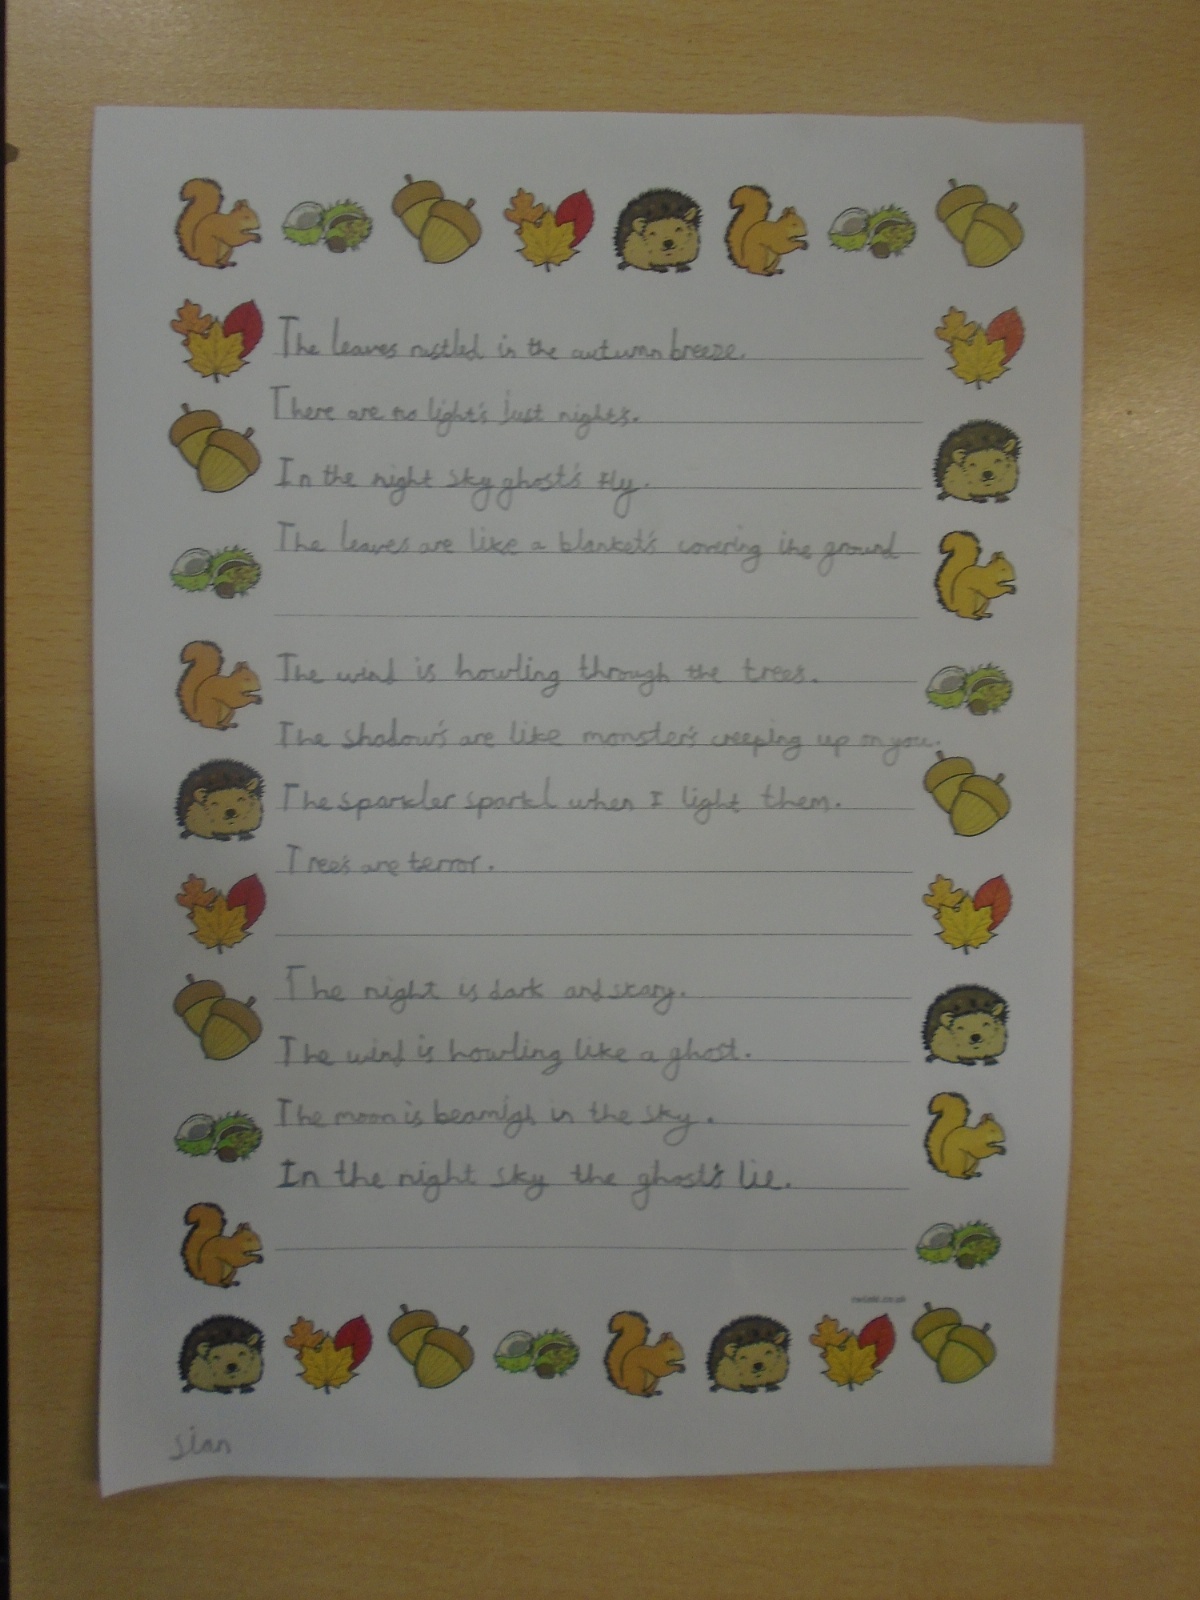 The leaves rustled in the autumn breeze.
There are no light's just night's.
In the night sky ghost's fly.
The leaves are like a blanket's covering the ground
The wind is howling through the trees.
The shadow's are like monster's creeping up on you.
The sparkler sparkl when I light them.
Tree's are terror.
The night is dark and scary.
The wind is howling like a ghost.
The moon is beamigh in the sky.
In the night sky the ghost's lie.
twinkl.co.uk
sian